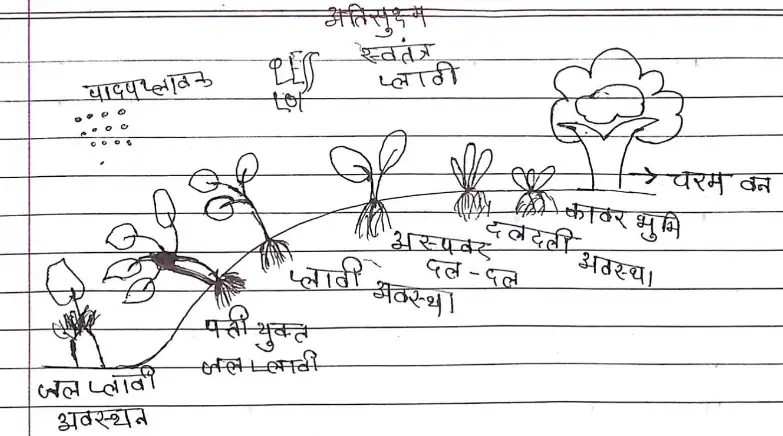 अतिसुक्ष्म
स्वतंत्र
प्लावी
पादपप्लावक
→ चरम वन
कावर भुमि
अवस्था
दलदली
अस्पवर
दल-दल
प्लावी
अवस्था
पत्ती युक्त
जल प्लावी
जल प्लावी
अवस्थन